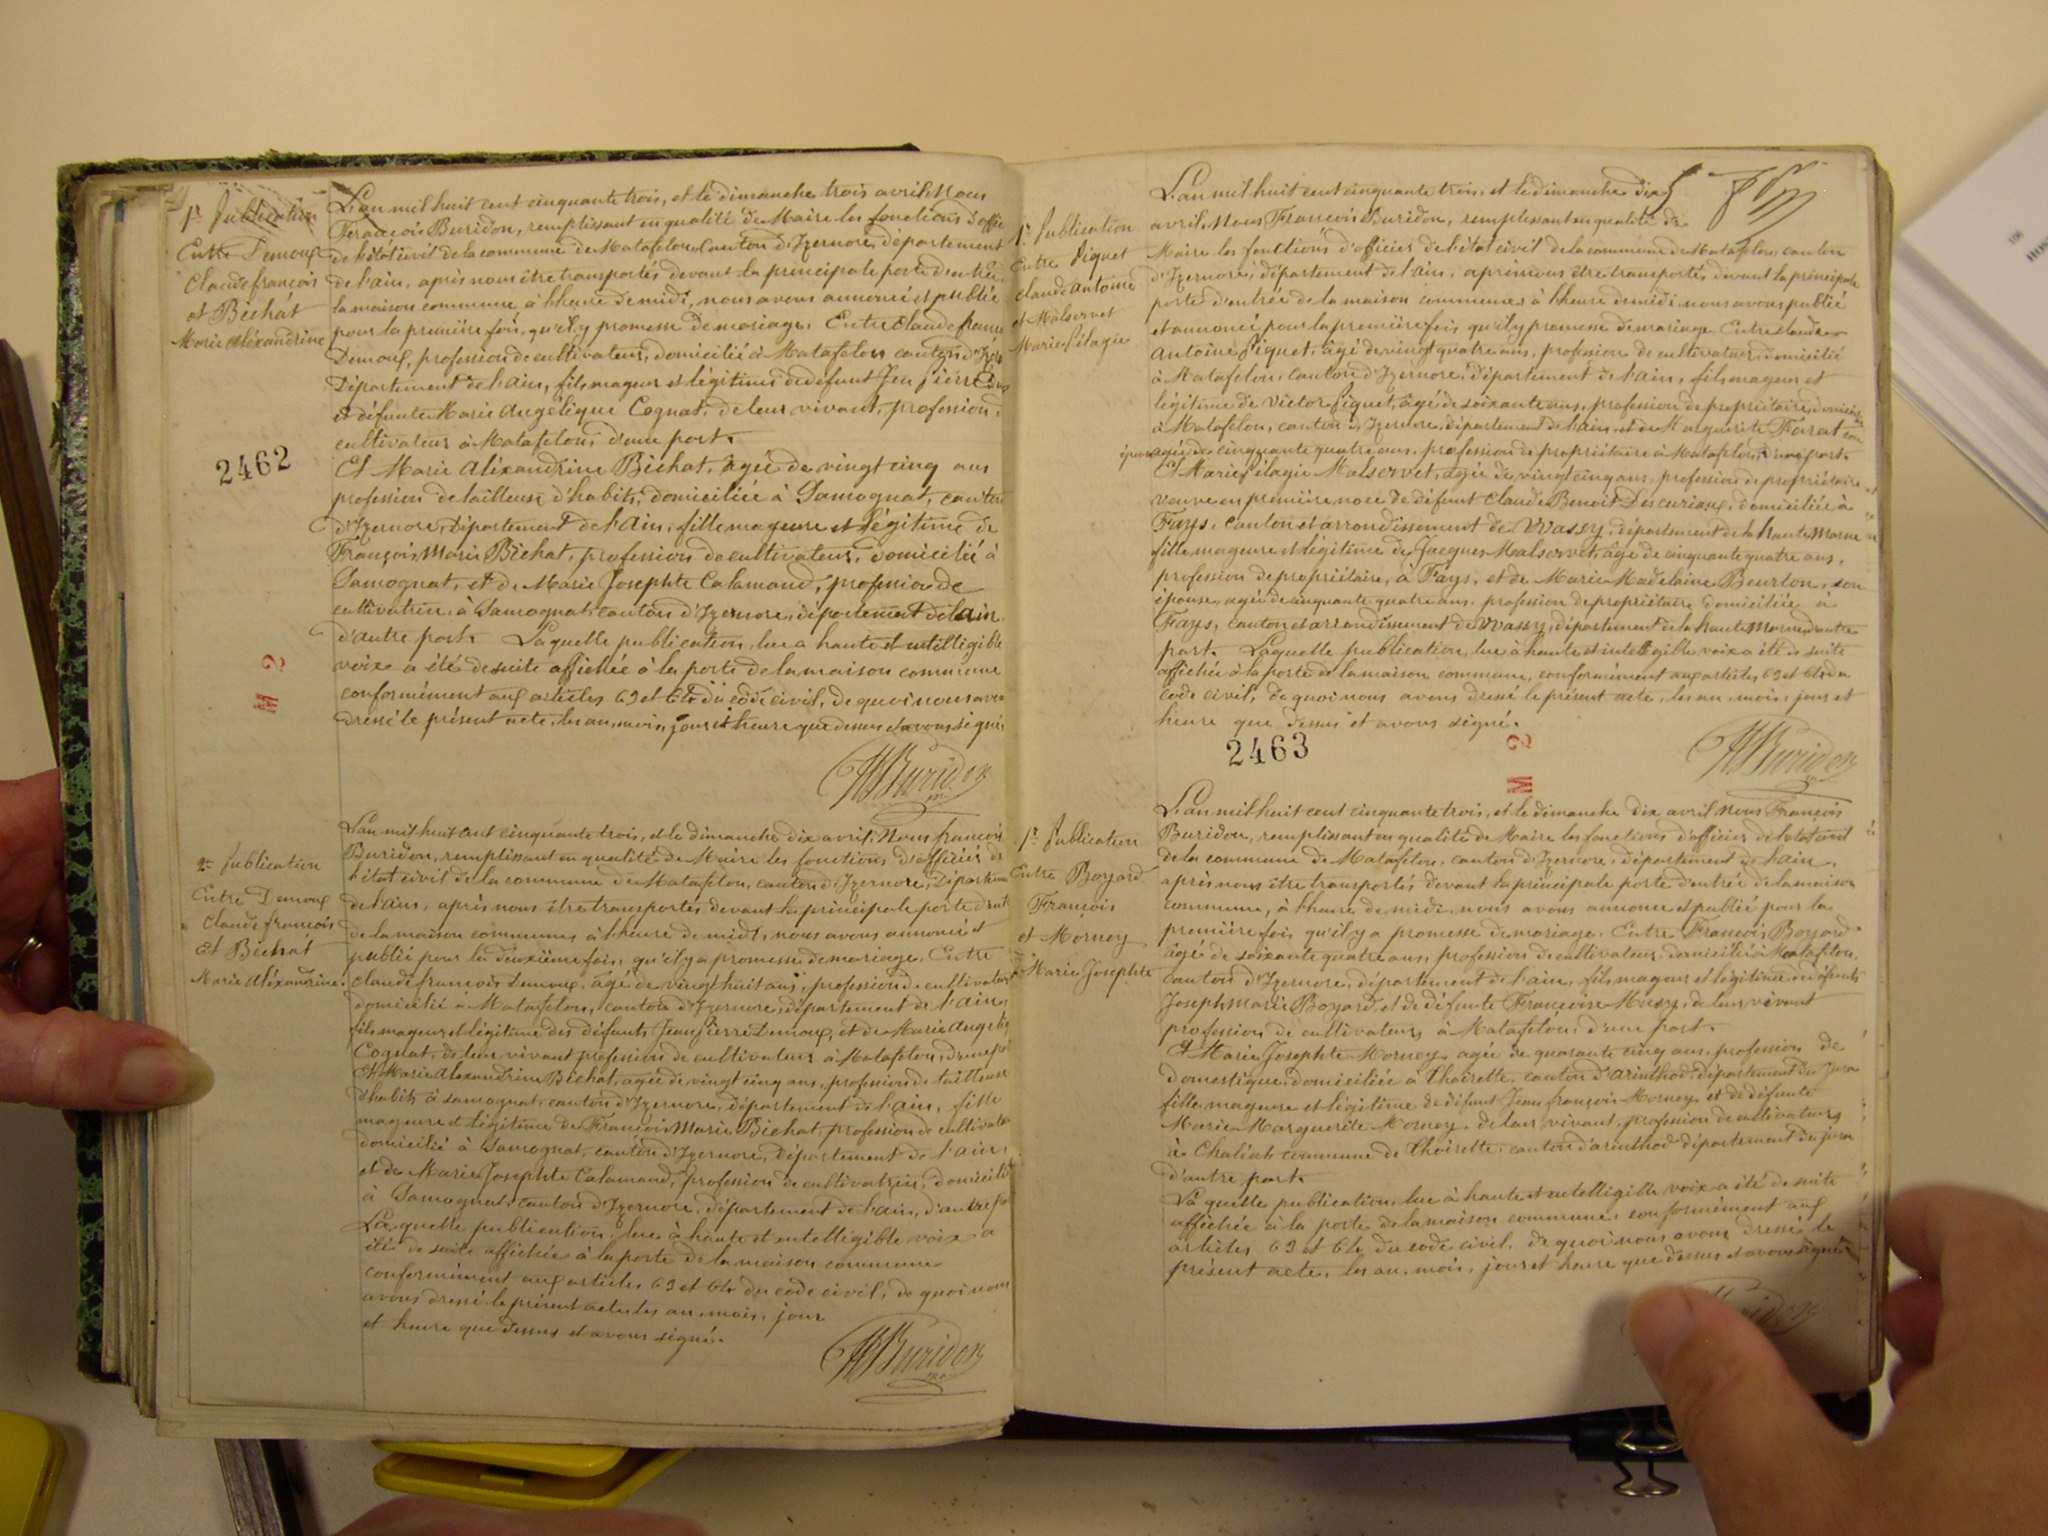 1re Publication
Entre Demoux
Claude françois
et Bichat
Marie Aléxandrine
L'an mil huit cent cinquante trois, et le dimanche trois avril Nous
François Buridon, remplissant en qualité de Maire les fonctions d'offi
de l'état civil de la commune de Matafelon Canton d'Izernore, département
de l'ain, après nous être transportés devant la principale porte d'entrée
la maison commune, à l'heure de midi, nous avons annoncé et publié
pour la première fois, qu'il y promesse de mariage. Entre Claude franç
Demoux, profession de cultivateur, domicilié à Matafelon canton d'Izer
Département de l'ain, fils mageur et légitime de défunt Jen Pierre
et défunte Marie Angélique Cognat, de leur vivant, profession
cultivateurs à Matafelon, d'une part.
2462
Et Marie Aléxandrine Bichat, agée de vingt cinq ans
profession de tailleuse d'habits, domiciliée à Samognat, canton
d'Izernore, Département de l'ain, fille mageure et légitime de
François Marie Bichat, profession de cultivateur, domicilié à
Samognat, et de Marie Josephte Calamand, profession de
cultivatrice, à Samognat, canton d'Izernore, département de l'ain
d'autre part. La quelle publication, lue a haute et intelligible
voix a été de suite affichée à la porte de la maison commune
conformément aux articles 63 et 64 du code civil, de quoi nous avo
dressé le présent acte, les an, mois, jour et heure que dessus et avons signé.
M 2
Buridon
2e Publication
Entre Demoux
Claude françois
Et Bichat
Marie Aléxandrine.
L'an mil huit cent cinquante trois, et le dimanche dix avril, Nous françois
Buridon, remplissant en qualité de Maire les fonctions d'officier de
l'état civil de la commune de Matafelon, canton d'Izernore, Départem
de l'ain, après nous être transportés devant la principale porte d'ent
de la maison commune, à l'heure de midi, nous avons annoncé et
publié pour la deuxième fois, qu'il y a promesse de mariage. Entre
Claude françois Demoux, âgé de vingt huit ans, profession de cultivateur
domicilié à Matafelon, canton d'Izernore, département de l'ain,
fils mageur et légitime des défunts Jean Pierre Demoux, et de Marie Angeliq
Cognat, de leur vivant profession de cultivateurs à Matafelon, d'une p
Et Marie Alexandrine Bichat, agée de vingt cinq ans, profession de tailleuse
d'habits à Samognat, canton d'Izernore, département de l'ain, fille
mageure et légitime de François Marie Bichat, profession de cultivate
domicilié à Samognat, canton d'Izernore, Département de l'ain,
et de Marie Josephte Calamand, profession de cultivatrice, domicili
à Samognat, canton d'Izernore, département de l'ain, d'autre p
La quelle publication, lue à haute et intelligible voix a
été de suite affichée à la porte de la maison commune
conformément aux articles 63 et 64 du code civil, de quoi nous
avons dressé le présent acte les an, mois, jour
et heure que dessus et avons signé.
Buridon
1re Publication
Entre Piquet
Claude antoine
et Malservet
Marie Pélagie
L'an mil huit cent cinquante trois, et le dimanche dix
avril, Nous François Buridon, remplissant en qualité de
Maire les fonctions d'officier de l'état civil de la commune de Matafelon, canton
d'Izernore, département de l'ain, après nous être transportés devant la principale
porte d'entrée de la maison commune, à l'heure de midi, nous avons publié
et annoncé pour la première fois, qu'il y promesse de mariage. Entre Claude
Antoine Piquet, âgé de vingt quatre ans, profession de cultivateur, domicilié
à Matafelon, canton d'Izernore, département de l'ain, fils mageur et
légitime de Victor Piquet, âgé de soixante ans, profession de propriétaire, domicilié
à Matafelon, canton d'Izernore, département de l'ain, et de Marguerite Farat son
épouse agée de cinquante quatre ans, profession de propriétaire à Matafelon, d'une part.
Et Marie Pélagie Malservet, agée de vingt cinq ans, profession de propriétaire
veuve en première noce de défunt Claude Benoit Descurieux, domiciliée à
Fays, Canton et arrondissement de Wassy, département de la haute Marne
fille mageure et légitime de Jacques Malservet, âgé de cinquante quatre ans,
profession de propriétaire, à Fays, et de Marie Madelaine Beurton, son
épouse, agée de cinquante quatre ans, profession de propriétaire domiciliée à
Fays, canton et arrondissement de Wassy, département de la haute Marne d'autre
part. Laquelle publication, lue à haute et intelligible voix a été de suite
affichée à la porte de la maison commune, conformément aux articles 63 et 64 du
code civil, de quoi nous avons dressé le présent acte, les an, mois, jour et
heure que dessus et avons signé.
2463
M 2
Buridon
1re Publication
Entre Boyard
François
et Mornay
Marie Josephte
L'an mil huit cent cinquante trois, et le dimanche dix avril Nous François
Buridon, remplissant en qualité de Maire les fonctions d'officier de l'etat civil
de la commune de Matafelon, canton d'Izernore, département de l'ain,
après nous être transportés devant la principale porte d'entrée de la maison
commune, à l'heure de midi, nous avons annoncé et publié pour la
première fois, qu'il y a promesse de mariage. Entre François Boyard
âgé de soixante quatre ans, profession de cultivateur, domicilié à Matafelon,
canton d'Izernore, département de l'ain, fils mageur et légitime de défunts
Joseph Marie Boyard et de défunte Françoise, de leur vivant
profession de cultivateurs à Matafelon, d'une part.
Et Marie Josephte Mornay agée de quarante cinq ans, profession de
domestique, domiciliée à Thoirette, canton d'arinthod département du Jura
fille mageure et légitime de défunt Jean françois Mornay et de défunte
Marie Marguerite Mornay de leur vivant, profession de cultivateurs
à Chaléat commune de Thoirette, canton d'arinthod département du jura
d'autre part.
La quelle publication, lue à haute et intelligible voix a été de suite
affichée à la porte de la maison commune, conformément aux
articles 63 et 64 du code civil, de quoi nous avons dressé le
présent acte, les an, mois, jour et heure que dessus et avons signé.